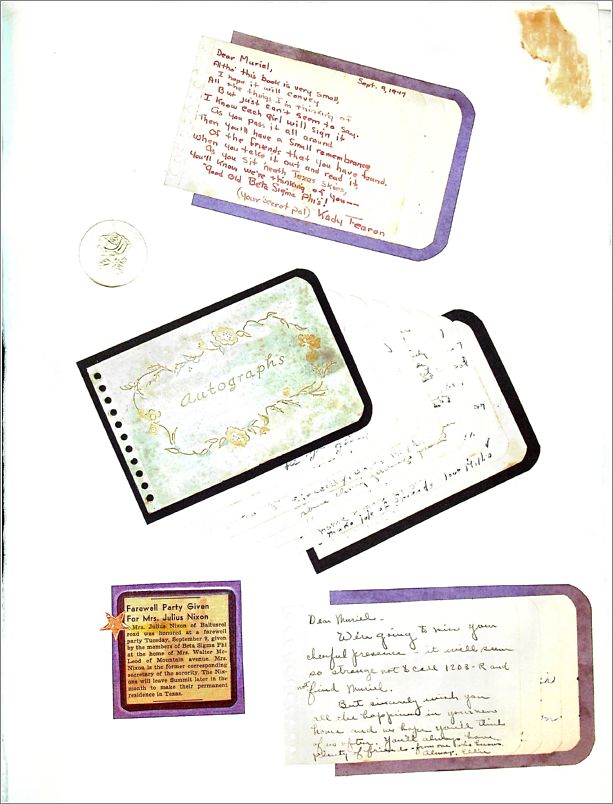 Dear Muriel,
Sept. 9, 1947
Altho' this book is very small,
I hope it will convey
All the things I'm thinking of
But just can't seem to say.
I know each girl will sign it
As you pass it all around
Then you'll have a small remembrance
Of the friends that you have found.
When you take it out and read it
As you sit neath Texas skies,
You'll know we're thinking of you--
"Good Old Beta Sigma Phi's"!
(Your Secret Pal) Kady Fearon
Autographs
Farewell Party Given
For Mrs. Julius Nixon
Mrs. Julius Nixon of Baltusrol
road was honored at a farewell
party Tuesday, September 9, given
by the members of Beta Sigma Phi
at the home of Mrs. Walter Mc-
Leod of Mountain avenue. Mrs.
Nixon is the former corresponding
secretary of the sorority. The Nix-
ons will leave Summit later in the
month to make their permanent
residence in Texas.
Dear Muriel -
We're going to miss your
cheerful presence & it will seem
so strange not to call 1203-R and
not find Muriel.
But sincerely wish you
all the happiness in your new
home and we hope you'll think
of us often. You'll always have
plenty of friends - from one who knows.
Always, Ellie